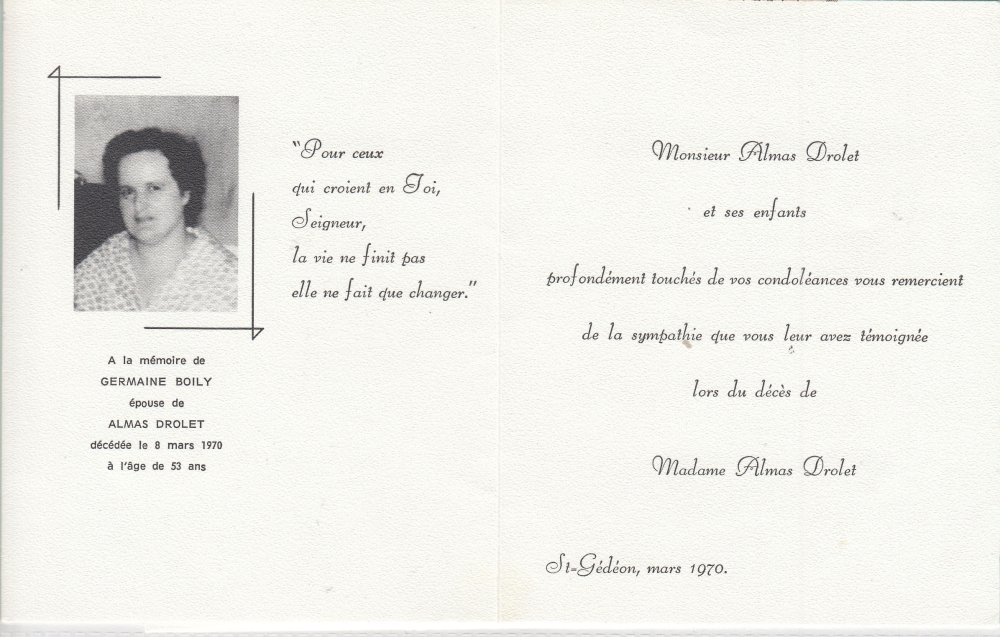 A la mémoire de
GERMAINE BOILY
épouse de
ALMAS DROLET
décédée le 8 mars 1970
à l'âge de 53 ans
"Pour ceux
qui croient en Toi,
Seigneur,
la vie ne finit pas
elle ne fait que changer."
Monsieur Almas Drolet
et ses enfants
profondément touchés de vos condoléances vous remercient
de la sympathie que vous leur avez témoignée
lors du décès de
Madame Almas Drolet
St-Gédéon, mars 1970.